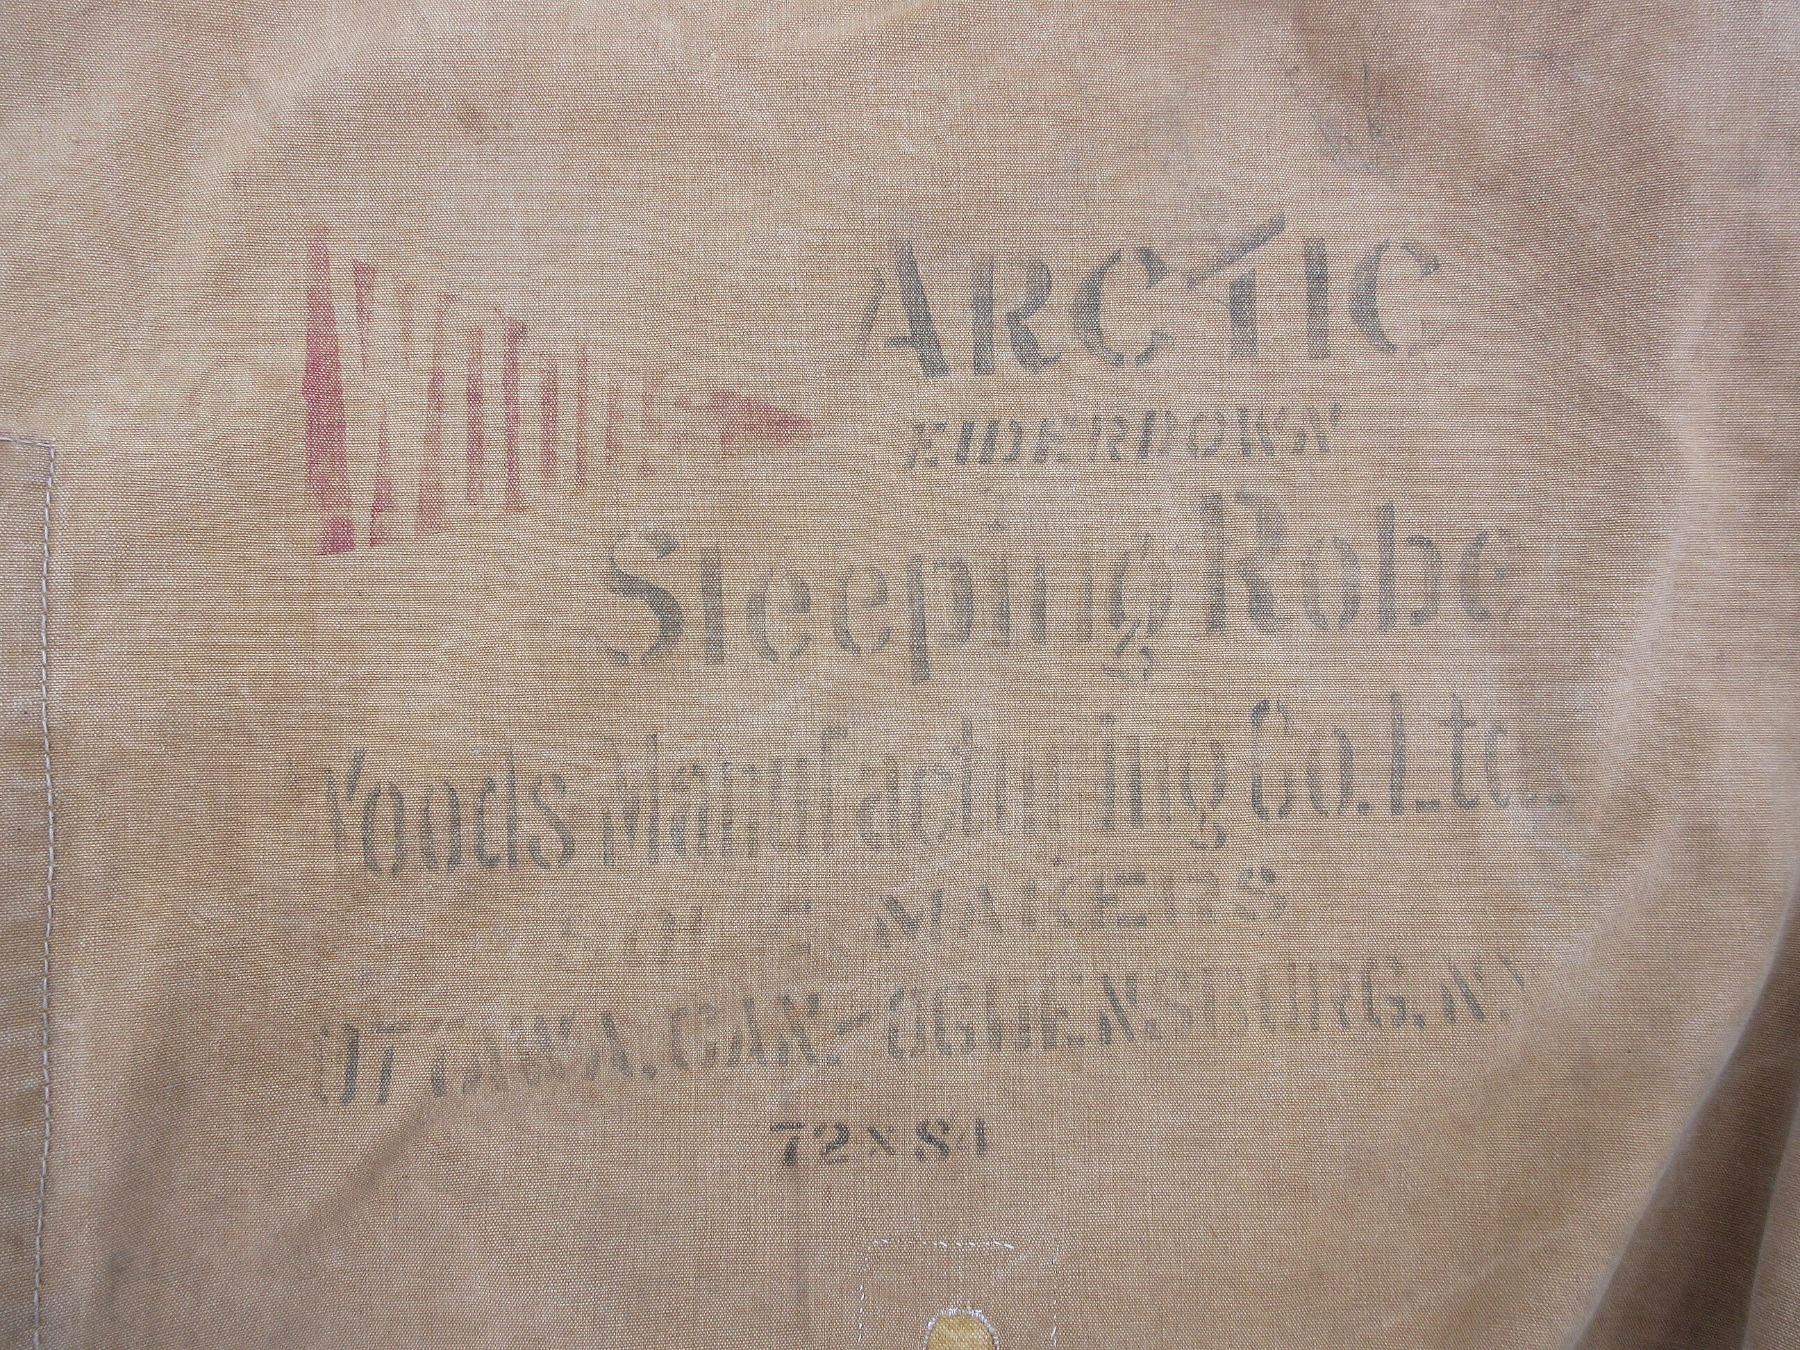 ARCTIC
EIDERDOWN
Sleeping Robe
Woods Manufacturing Co. Ltd.
SOLE MAKERS
OTTAWA.CAN.-OGDENSBURG.N.Y
72X84